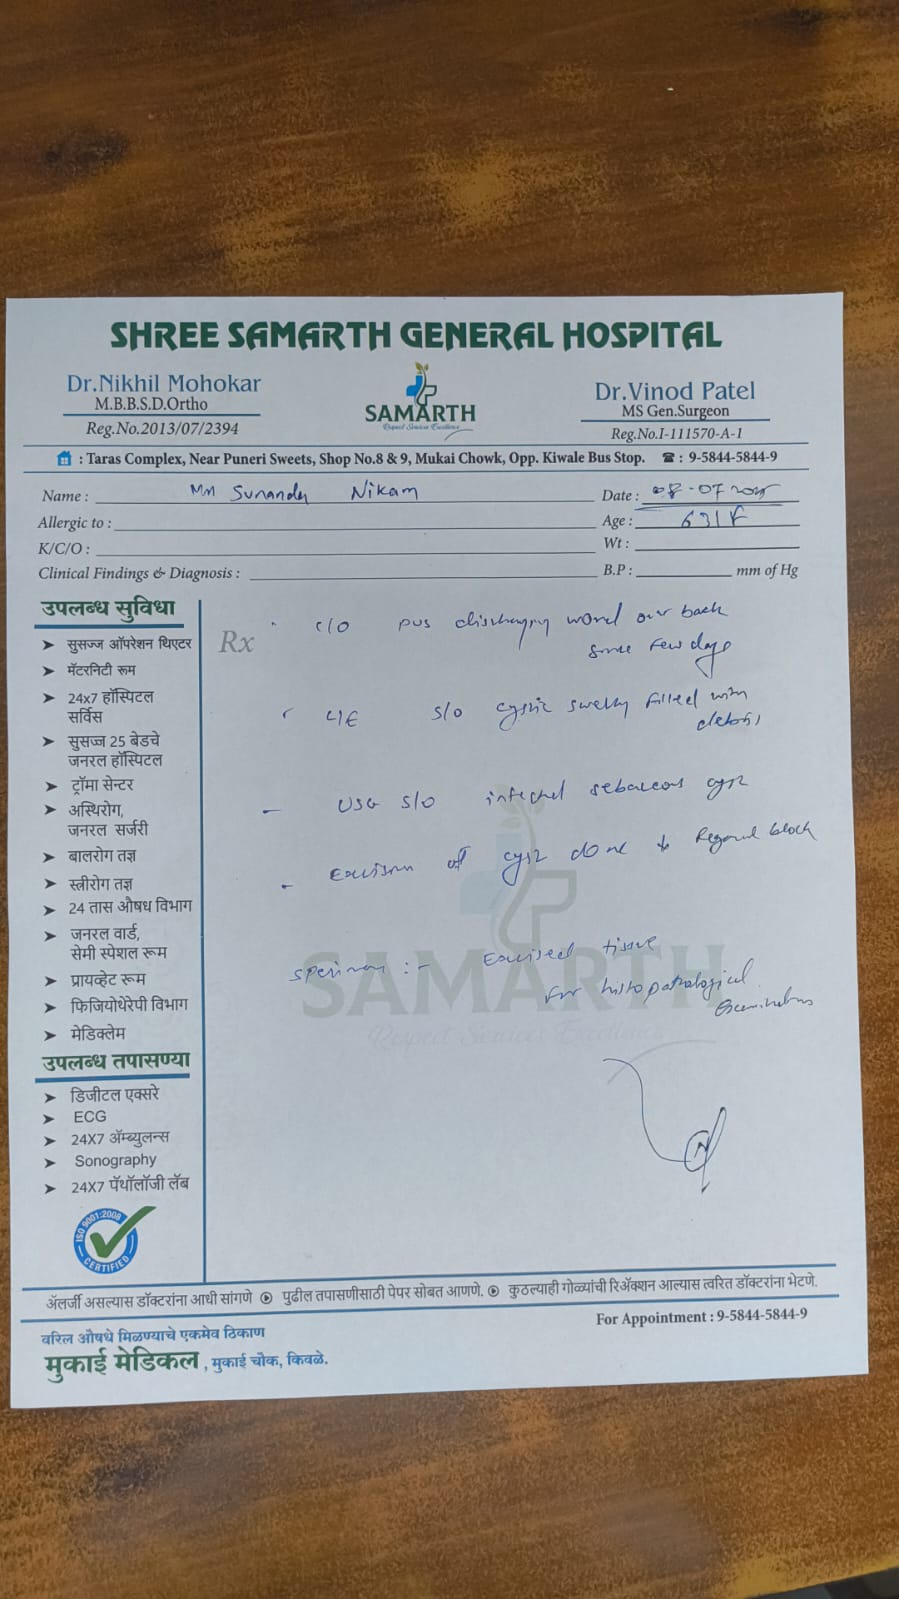 SHREE SAMARTH GENERAL HOSPITAL
Dr.Nikhil Mohokar
M.B.B.S.D.Ortho
Reg.No.2013/07/2394
SAMARTH
Respect Services Excellence
Dr.Vinod Patel
MS Gen.Surgeon
Reg.No.I-111570-A-1
: Taras Complex, Near Puneri Sweets, Shop No.8 & 9, Mukai Chowk, Opp. Kiwale Bus Stop. ☎ : 9-5844-5844-9
Name : Nikam Date : 08-07-2025
Allergic to : Age : 63/F
K/C/O : Wt :
Clinical Findings & Diagnosis : B.P : mm of Hg
उपलब्ध सुविधा
सुसज्ज ऑपरेशन थिएटर
मॅटरनिटी रूम
24x7 हॉस्पिटल
सर्विस
सुसज्ज 25 बेडचे
जनरल हॉस्पिटल
ट्रॉमा सेन्टर
अस्थिरोग,
जनरल सर्जरी
बालरोग तज्ञ
स्त्रीरोग तज्ञ
24 तास औषध विभाग
जनरल वार्ड,
सेमी स्पेशल रूम
प्रायव्हेट रूम
फिजियोथेरेपी विभाग
मेडिक्लेम
उपलब्ध तपासण्या
डिजीटल एक्सरे
ECG
24X7 ॲम्ब्युलन्स
Sonography
24X7 पॅथॉलॉजी लॅब
ISO 9001:2008
CERTIFIED
Rx
c/o pus discharging over back
since few days
L/E s/o cystic swelling filled with
debris
- USG s/o infected sebaceous cyst
- Excision of cyst done Regional block
specimen :- Excised tissue
for histopathological
Examination
SAMARTH
Respect Services Excellence
ॲलर्जी असल्यास डॉक्टरांना आधी सांगणे पुढील तपासणीसाठी पेपर सोबत आणणे. कुठल्याही गोळ्यांची रिॲक्शन आल्यास त्वरित डॉक्टरांना भेटणे.
For Appointment : 9-5844-5844-9
वरिल औषधे मिळण्याचे एकमेव ठिकाण
मुकाई मेडिकल , मुकाई चौक, किवळे.